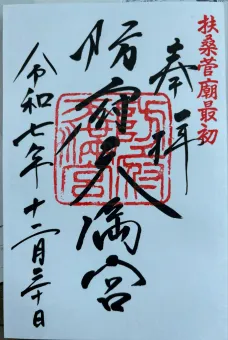 扶桑菅廟最初
奉拝
防府天満宮
令和七年十二月三十日